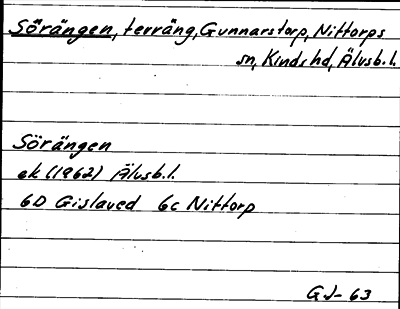 Sörängen, terräng, Gunnarstorp, Nittorps
sn, Kinds hd, Älvsb. l.
Sörängen
ek (1962) Älvsb. l.
6D Gislaved 6c Nittorp
GJ-63